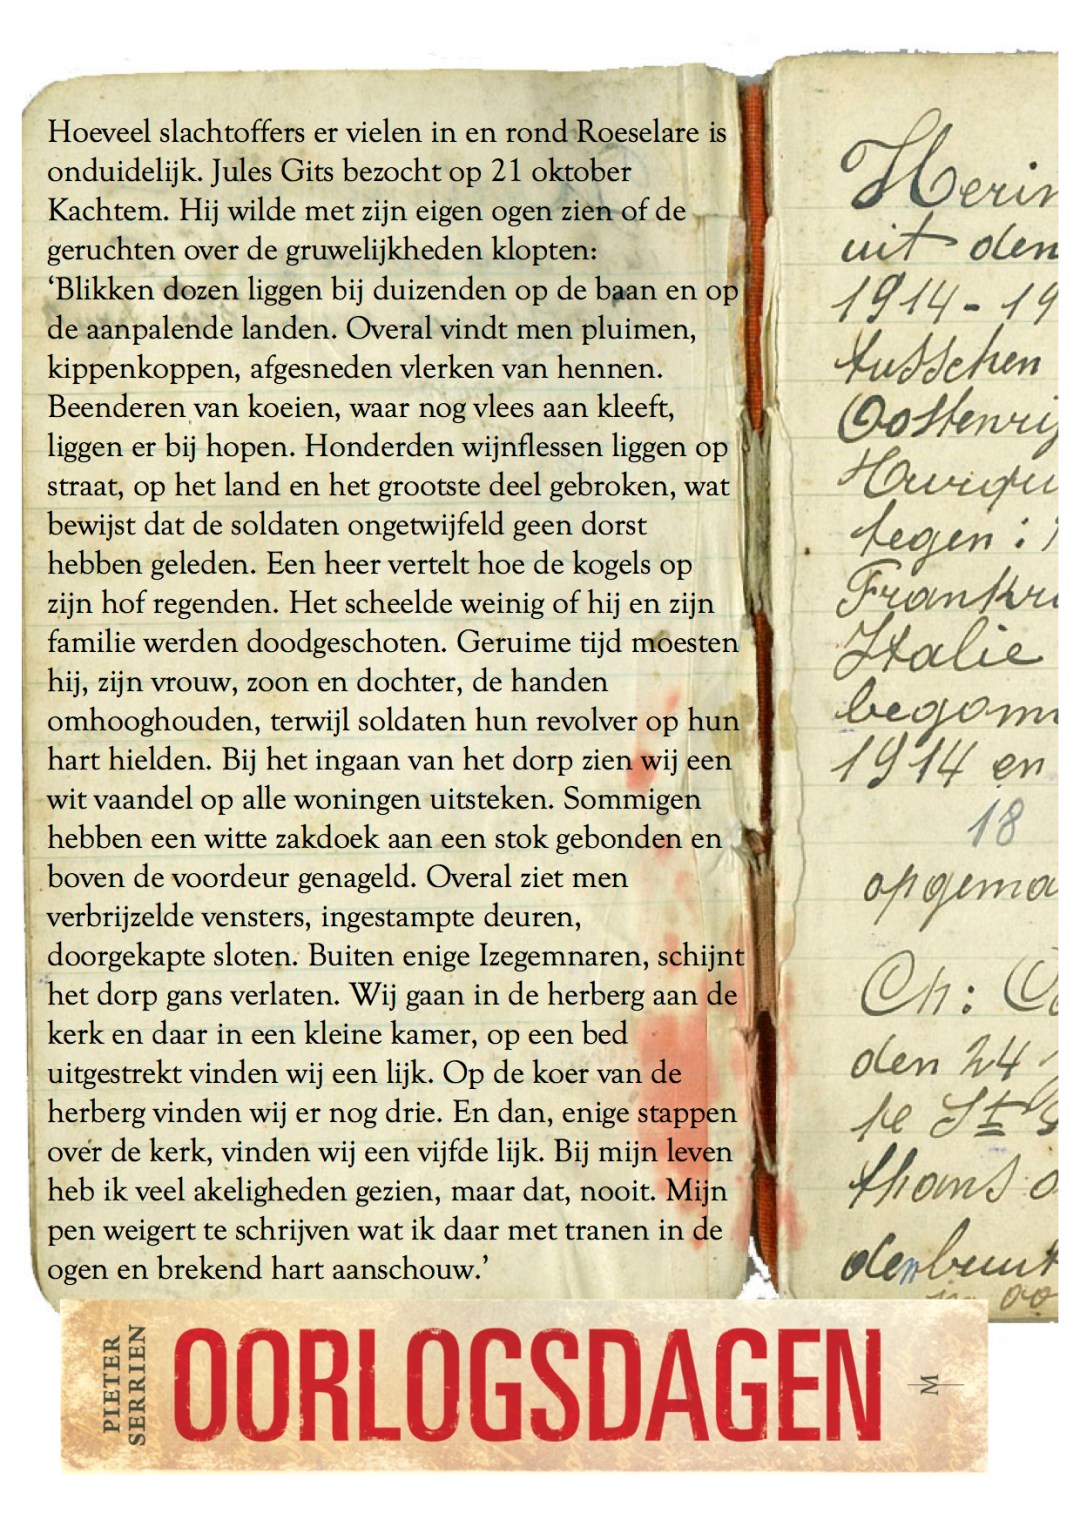 Hoeveel slachtoffers er vielen in en rond Roeselare is
onduidelijk. Jules Gits bezocht op 21 oktober
Kachtem. Hij wilde met zijn eigen ogen zien of de
geruchten over de gruwelijkheden klopten:
‘Blikken dozen liggen bij duizenden op de baan en op
de aanpalende landen. Overal vindt men pluimen,
kippenkoppen, afgesneden vlerken van hennen.
Beenderen van koeien, waar nog vlees aan kleeft,
liggen er bij hopen. Honderden wijnflessen liggen op
straat, op het land en het grootste deel gebroken, wat
bewijst dat de soldaten ongetwijfeld geen dorst
hebben geleden. Een heer vertelt hoe de kogels op
zijn hof regenden. Het scheelde weinig of hij en zijn
familie werden doodgeschoten. Geruime tijd moesten
hij, zijn vrouw, zoon en dochter, de handen
omhooghouden, terwijl soldaten hun revolver op hun
hart hielden. Bij het ingaan van het dorp zien wij een
wit vaandel op alle woningen uitsteken. Sommigen
hebben een witte zakdoek aan een stok gebonden en
boven de voordeur genageld. Overal ziet men
verbrijzelde vensters, ingestampte deuren,
doorgekapte sloten. Buiten enige Izegemnaren, schijnt
het dorp gans verlaten. Wij gaan in de herberg aan de
kerk en daar in een kleine kamer, op een bed
uitgestrekt vinden wij een lijk. Op de koer van de
herberg vinden wij er nog drie. En dan, enige stappen
over de kerk, vinden wij een vijfde lijk. Bij mijn leven
heb ik veel akeligheden gezien, maar dat, nooit. Mijn
pen weigert te schrijven wat ik daar met tranen in de
ogen en brekend hart aanschouw.’
Herin
uit den
1914-19
tusschen
Oostenrij
tegen:
Frankr
Italie
begonn
1914 en
18
opgema
Ch:
den 24
te St
thans
PIETER
SERRIEN
OORLOGSDAGEN
M